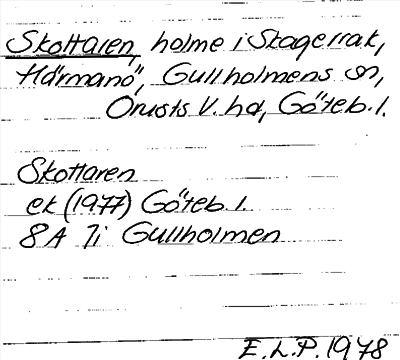 Skottaren, holme i Skagerrak,
Härmanö, Gullholmens sn,
Orusts V. hd, Göteb. l.
Skottaren
ek (1977) Göteb. l.
8A 7i Gullholmen
E.L.P. 1978